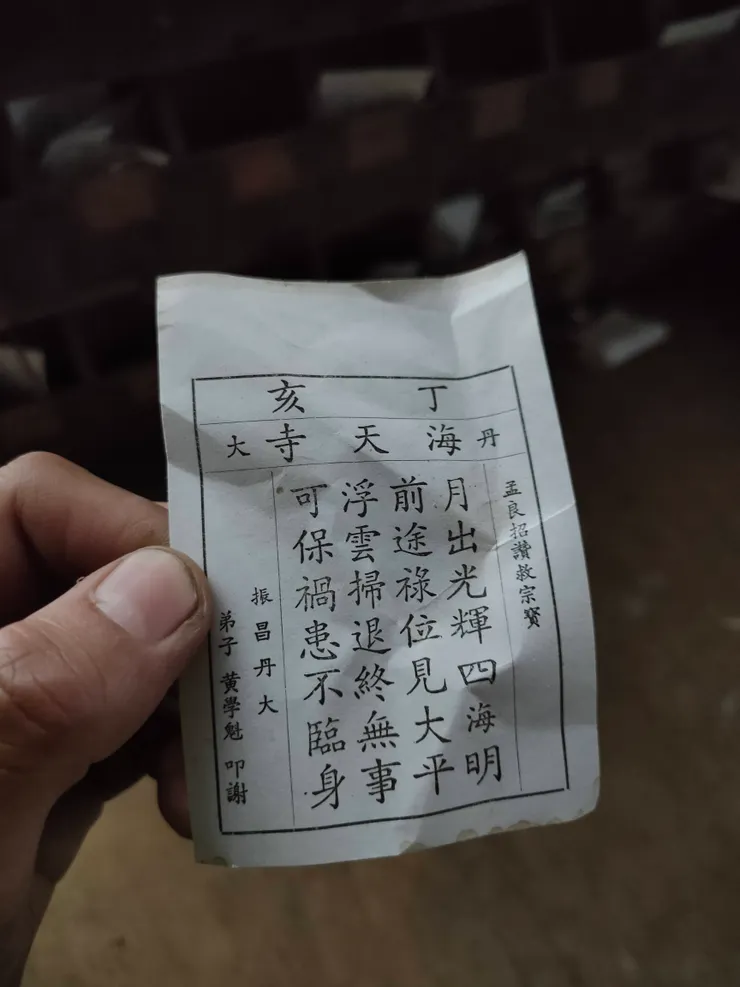 丁亥
丹海天寺大
孟良招讚救宗寶
月出光輝四海明
前途祿位見大平
浮雲掃退終無事
可保禍患不臨身
振昌丹大
弟子 黃學魁 叩謝